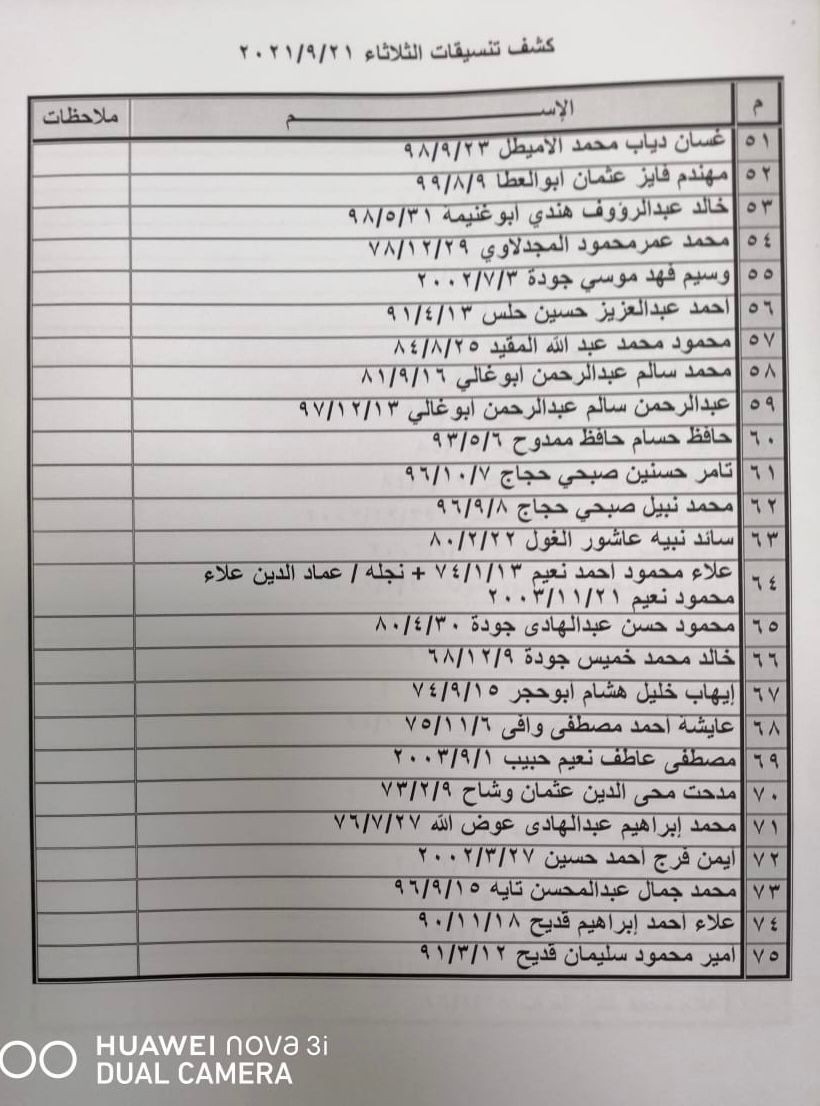 كشف تنسيقات الثلاثاء ٢٠٢١/٩/٢١
م الإســـــــــم ملاحظات
٥١ غسان دياب محمد الاميطل ٩٨/٩/٢٣
٥٢ مهندم فايز عثمان ابوالعطا ٩٩/٨/٩
٥٣ خالد عبدالرؤوف هندي ابوغنيمة ٩٨/٥/٣١
٥٤ محمد عمرمحمود المجدلاوي ٧٨/١٢/٢٩
٥٥ وسيم فهد موسي جودة ٢٠٠٢/٧/٣
٥٦ احمد عبدالعزيز حسين حلس ٩١/٤/١٣
٥٧ محمود محمد عبد الله المقيد ٨٤/٨/٢٥
٥٨ محمد سالم عبدالرحمن ابوغالي ٨١/٩/١٦
٥٩ عبدالرحمن سالم عبدالرحمن ابوغالي ٩٧/١٢/١٣
٦٠ حافظ حسام حافظ ممدوح ٩٣/٥/٦
٦١ تامر حسنين صبحي حجاج ٩٦/١٠/٧
٦٢ محمد نبيل صبحي حجاج ٩٦/٩/٨
٦٣ سائد نبيه عاشور الغول ٨٠/٢/٢٢
٦٤ علاء محمود احمد نعيم ٧٤/١/١٣ + نجله / عماد الدين علاء
محمود نعيم ٢٠٠٣/١١/٢١
٦٥ محمود حسن عبدالهادى جودة ٨٠/٤/٣٠
٦٦ خالد محمد خميس جودة ٦٨/١٢/٩
٦٧ إيهاب خليل هشام ابوحجر ٧٤/٩/١٥
٦٨ عايشة احمد مصطفى وافى ٧٥/١١/٦
٦٩ مصطفى عاطف نعيم حبيب ٢٠٠٣/٩/١
٧٠ مدحت محى الدين عثمان وشاح ٧٣/٢/٩
٧١ محمد إبراهيم عبدالهادى عوض الله ٧٦/٧/٢٧
٧٢ ايمن فرج احمد حسين ٢٠٠٢/٣/٢٧
٧٣ محمد جمال عبدالمحسن تايه ٩٦/٩/١٥
٧٤ علاء احمد إبراهيم قديح ٩٠/١١/١٨
٧٥ امير محمود سليمان قديح ٩١/٣/١٢
HUAWEI nova 3i
DUAL CAMERA